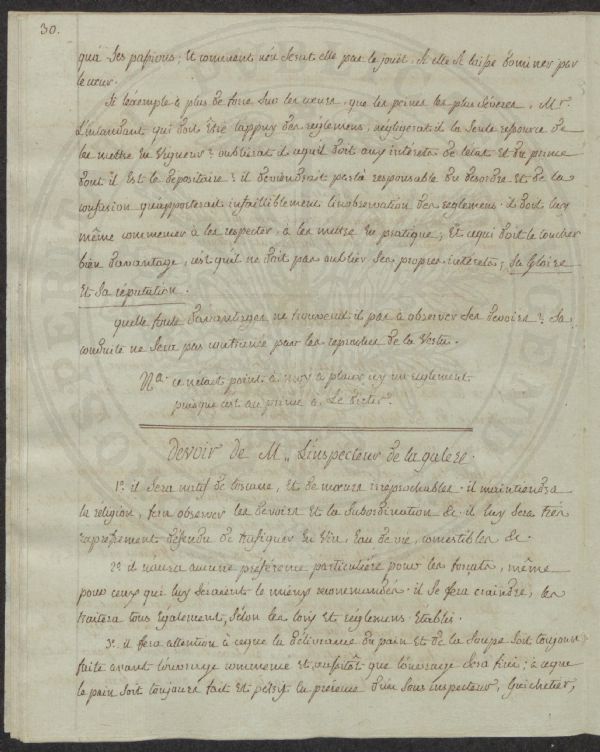 30.
qu'a ses passions; Et comment n'en serait elle pas le jouët, si elle se laisse dominer par
le cœur.
Si l'exemple a plus de force sur les cœurs, que les peines les plus sévères, Mr.
L'intendant qui doit Être l'appuy des réglemens, négligerat il la seule ressource de
les mettre en vigueur? oublierat il cequil doit aux intérêts de l'etat et du prince
dont il est le dépositaire? il deviendrait par là responsable du desordre et de la
confusion qu'apporterait infailliblement l'inobservation des reglemens. il doit luy
même commencer à les respecter, à les mettre en pratique; Et cequi doit le toucher
bien davantage, c'est qu'il ne doit pas oublier ses propres intérets; sa Gloire
Et sa réputation.
quelle foule d'avantages ne trouverat il pas à observer ses devoirs? sa
conduite ne sera pas contraire par les reproches de la Vertu.
Na. ce n'etait point à moy à placer icy un reglement
puisque c'est au prince à le dicter.
Devoir de M,, L'inspecteur de la galere.
1º. il sera natif de toscane, Et de mœurs irreprochables. il maintiendra
la religion, fera observer les devoirs Et la subordination & il luy sera très
expressement défendu de trafiquer en Vin, Eau de vie, comestibles &.
2º. il n'aura aucune préférence particulière pour les forçats, même
pour ceux qui luy seraient le mieux recommandés. il se fera craindre, les
traitera tous également, selon les loix Et réglemens Etablis.
3º. il fera attention à ceque la délivrance du pain Et de la soupe soit toujours
faite avant l'ouvrage commencé et aussitôt que l'ouvrage sera fini; à ceque
le pain soit toujours fait Et pesé en présence d'un sous inspecteur, Guichetier,